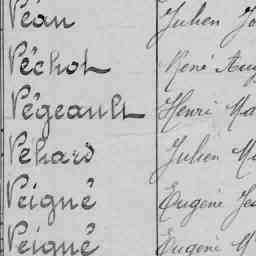 Péan Julien
Péchot René
Pégeault Henri
Pehard Julien
Peigné Eugène
Peigné Eugène